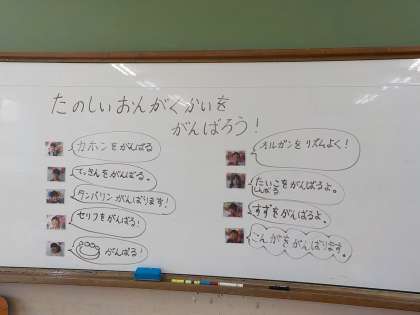 たのしいおんがくかいを
がんばろう！
カホンをがんばる
てっきんをがんばる。
タンバリンがんばります！
セリフをがんばる！
がんばる！
オルガンをリズムよく！
たいこをがんばるよ。
しんばる
すずをがんばるよ。
こんがをがんばります。